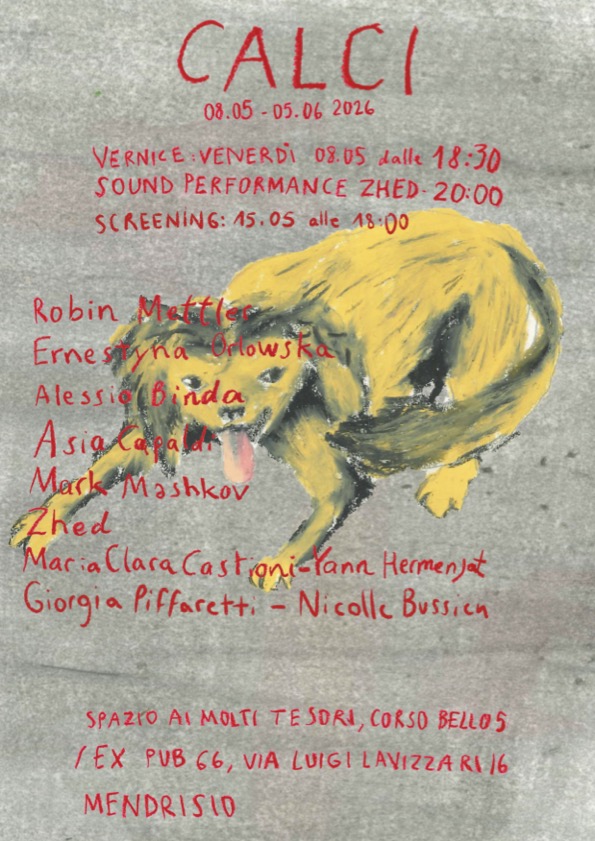 CALCI
08.05 - 05.06 2026
VERNICE: VENERDÌ 08.05 dalle 18:30
SOUND PERFORMANCE ZHED - 20:00
SCREENING: 15.05 alle 18:00
Robin Mettler
Ernestyna Orlowska
Alessio Binda
Asia Capaldi
Mark Mashkov
Zhed
Maria Clara Castioni - Yann Hermenjat
Giorgia Piffaretti - Nicolle Bussien
SPAZIO AI MOLTI TESORI, CORSO BELLO 5
/ EX PUB 66, VIA LUIGI LAVIZZARI 16
MENDRISIO